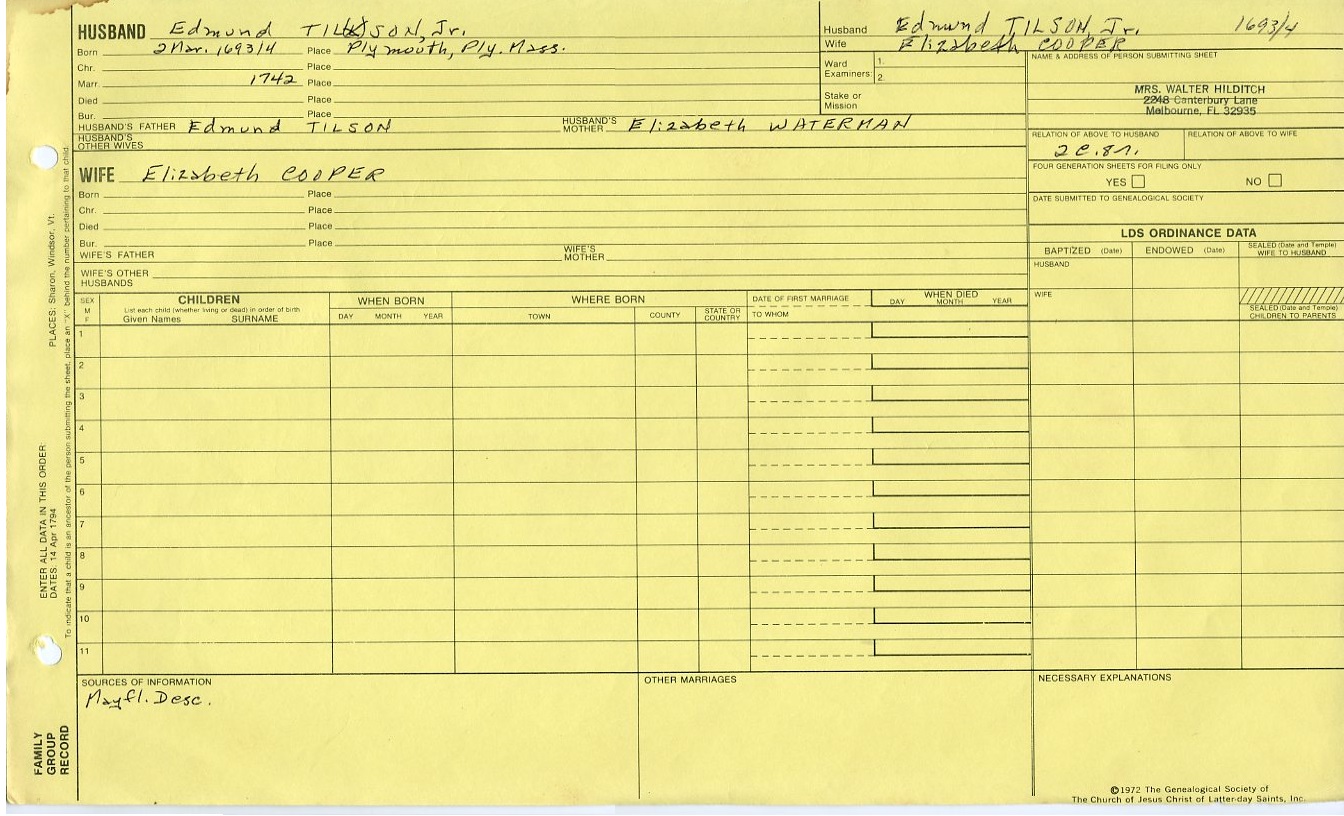 HUSBAND Edmund TILSON, Jr.
Born 2 Mar. 1693/4 Place Plymouth, Ply. Mass.
Chr. Place
Marr. 1742 Place
Died Place
Bur. Place
HUSBAND'S FATHER Edmund TILSON HUSBAND'S MOTHER Elizabeth WATERMAN
HUSBAND'S OTHER WIVES
Husband Edmund TILSON, Jr. 1693/4
Wife Elizabeth COOPER
Ward 1.
Examiners: 2.
Stake or
Mission
NAME & ADDRESS OF PERSON SUBMITTING SHEET
MRS. WALTER HILDITCH
2248 Canterbury Lane
Melbourne, FL 32935
RELATION OF ABOVE TO HUSBAND RELATION OF ABOVE TO WIFE
2C.8r.
FOUR GENERATION SHEETS FOR FILING ONLY
YES NO
DATE SUBMITTED TO GENEALOGICAL SOCIETY
WIFE Elizabeth COOPER
Born Place
Chr. Place
Died Place
Bur. Place
WIFE'S FATHER WIFE'S MOTHER
WIFE'S OTHER
HUSBANDS
LDS ORDINANCE DATA
BAPTIZED (Date) ENDOWED (Date) SEALED (Date and Temple) WIFE TO HUSBAND
HUSBAND
WIFE
SEALED (Date and Temple)
CHILDREN TO PARENTS
SEX
M
F
CHILDREN
List each child (whether living or dead) in order of birth
Given Names SURNAME
WHEN BORN
DAY MONTH YEAR
WHERE BORN
TOWN COUNTY STATE OR COUNTRY
DATE OF FIRST MARRIAGE
TO WHOM
WHEN DIED
DAY MONTH YEAR
1
2
3
4
5
6
7
8
9
10
11
SOURCES OF INFORMATION
Mayfl. Desc.
OTHER MARRIAGES
NECESSARY EXPLANATIONS
©1972 The Genealogical Society of
The Church of Jesus Christ of Latter-day Saints, Inc.
FAMILY
GROUP
RECORD
ENTER ALL DATA IN THIS ORDER:
DATES: 14 Apr 1794 PLACES: Sharon, Windsor, Vt.
To indicate that a child is an ancestor of the person submitting the sheet, place an "X" behind the number pertaining to that child.